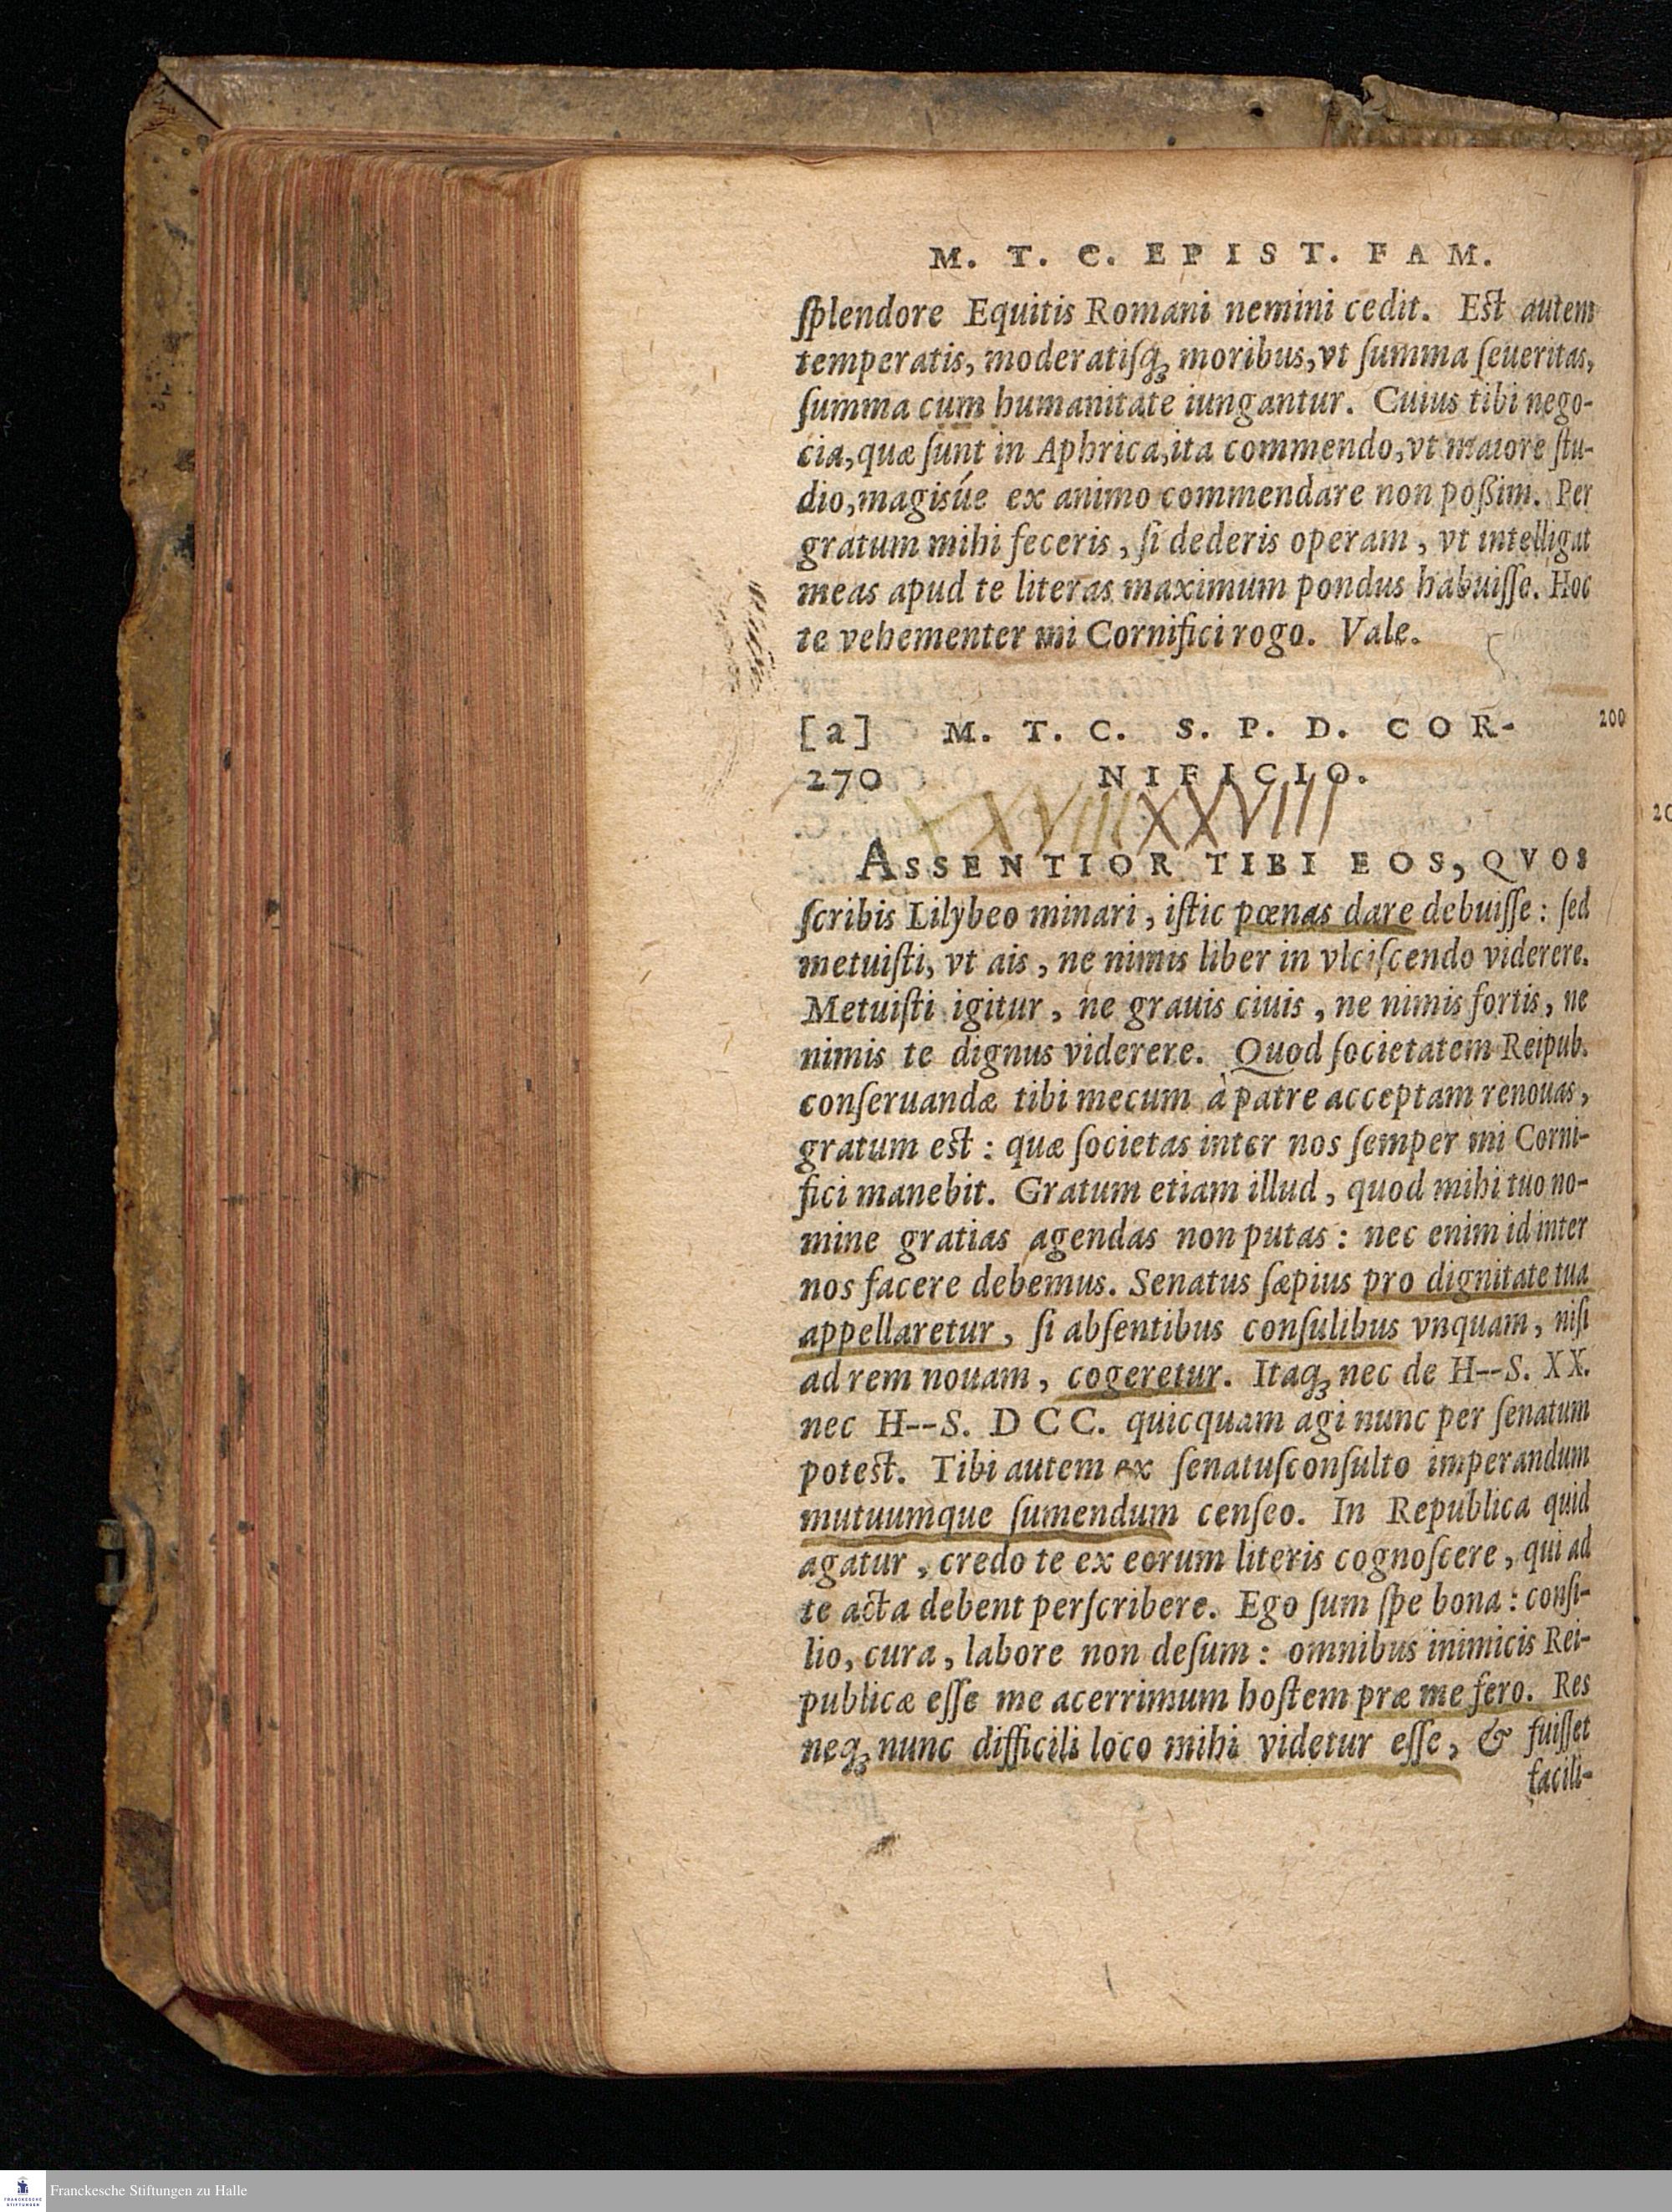 M. T. C. EPIST. FAM.
ſplendore Equitis Romani nemini cedit. Est autem
temperatis, moderatiſq́; moribus, vt ſumma ſeueritas,
ſumma cum humanitate iungantur. Cuius tibi nego-
cia, quæ ſunt in Aphrica, ita commendo, vt maiore ſtu-
dio, magisúe ex animo commendare non poßim. Per
gratum mihi feceris, ſi dederis operam, vt intelligat
meas apud te literas maximum pondus habuiſſe. Hoc
te vehementer mi Cornifici rogo. Vale.
[a] M. T. C. S. P. D. COR-
200
270 NIFICIO.
XXVIII XXVIII
ASSENTIOR TIBI EOS, QVOS
ſcribis Lilybeo minari, iſtic pœnas dare debuiſſe: ſed
metuiſti, vt ais, ne nimis liber in vlciſcendo viderere.
Metuiſti igitur, ne grauis ciuis, ne nimis fortis, ne
nimis te dignus viderere. Quod ſocietatem Reipub.
conſeruandæ tibi mecum à patre acceptam renouas,
gratum est: quæ ſocietas inter nos ſemper mi Corni-
fici manebit. Gratum etiam illud, quod mihi tuo no-
mine gratias agendas non putas: nec enim id inter
nos facere debemus. Senatus ſæpius pro dignitate tua
appellaretur, ſi abſentibus conſulibus vnquam, niſi
ad rem nouam, cogeretur. Itaq; nec de H--S. XX.
nec H--S. DCC. quicquam agi nunc per ſenatum
potest. Tibi autem ex ſenatuſconſulto imperandum
mutuumque ſumendum cenſeo. In Republica quid
agatur, credo te ex eorum literis cognoſcere, qui ad
te acta debent perſcribere. Ego ſum ſpe bona: conſi-
lio, cura, labore non deſum: omnibus inimicis Rei-
publicæ eſſe me acerrimum hoſtem præ me fero. Res
neq; nunc difficili loco mihi videtur eſſe, & fuiſſet
facili-
Franckesche Stiftungen zu Halle